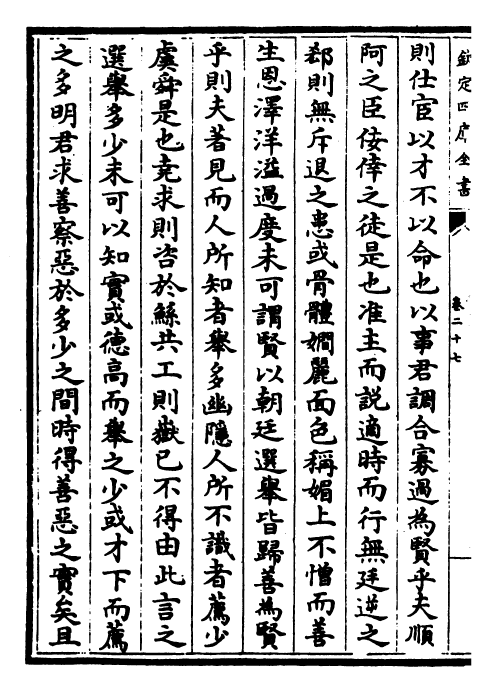 欽定四庫全書
卷二十七
則仕宦以才不以命也以事君調合寡過為賢乎夫順
阿之臣佞倖之徒是也准主而説適時而行無廷逆之
郄則無斥退之患或骨體嫺麗面色稱媚上不憎而善
生恩澤洋溢過度未可謂賢以朝廷選舉皆歸善為賢
乎則夫著見而人所知者舉多幽隱人所不識者薦少
虞舜是也堯求則咨於鯀共工則嶽已不得由此言之
選舉多少未可以知實或德高而舉之少或才下而薦
之多明君求善察惡於多少之間時得善惡之實矣且